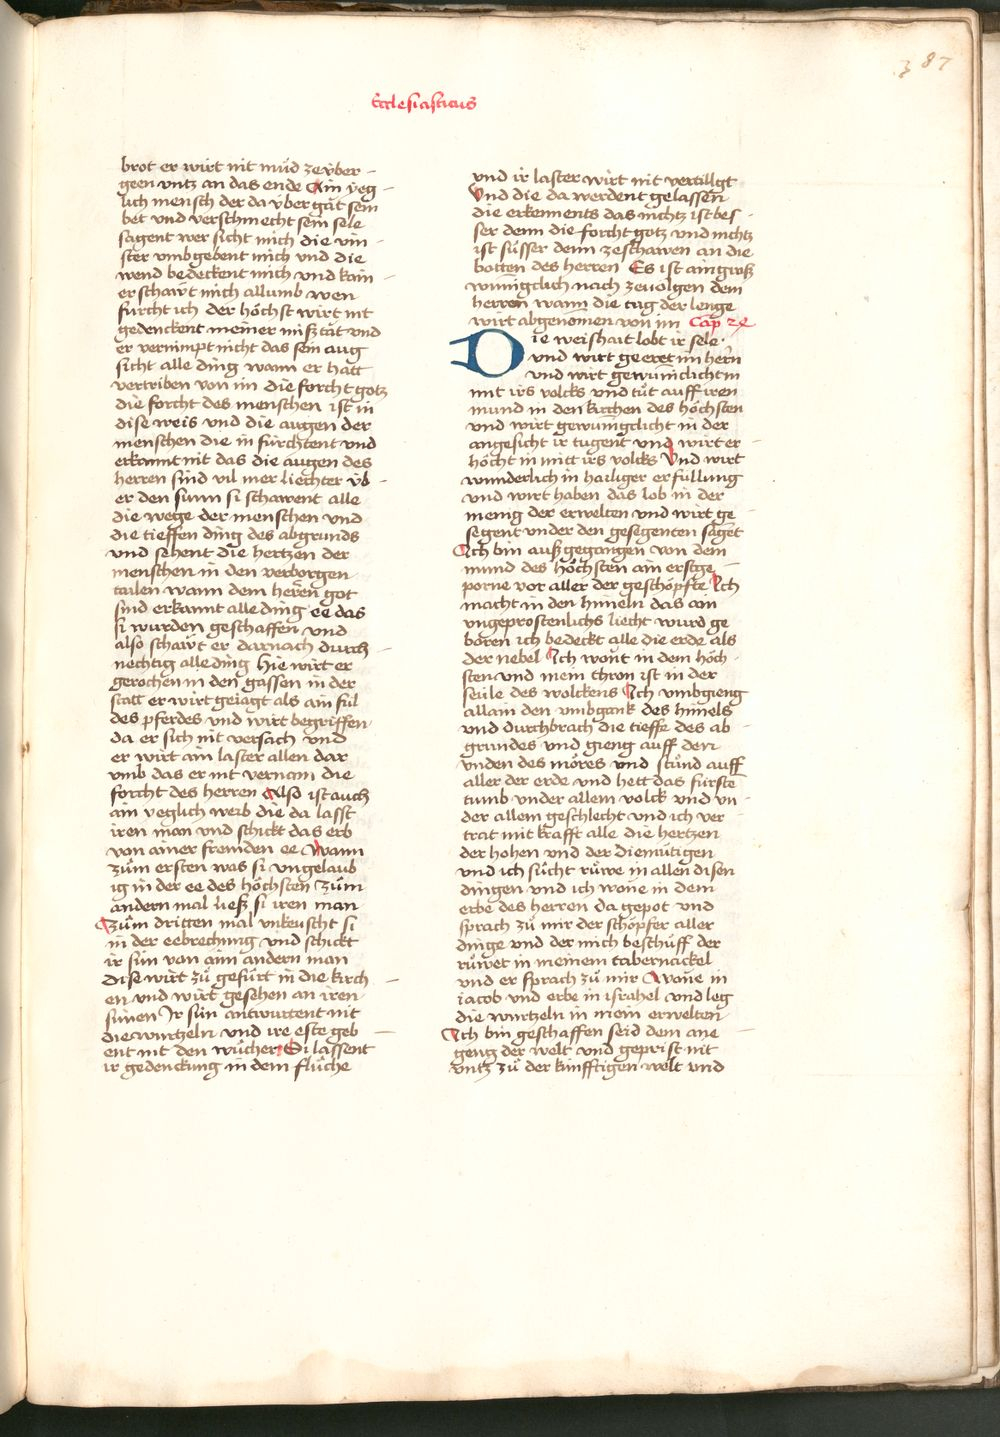 387
Ecclesiasticus
brot er wirt nit müd ze vber-
geen vntz an das ende Ain yeg-
lich mensch der da vbergät sein
bet vnd verschmecht sein sele
sagent wer sicht mich die vin-
ster vmbgebent mich vnd die
wend bedeckent mich vnd kain-
er schawt mich allumb wen
fürcht ich der höchst wirt nit
gedenckent meiner missetät vnd
er vernimpt nicht das sein aug
sicht alle ding wann er hatt
vertriben von im die forcht gotz
die forcht des menschen ist in
dise weis vnd die augen der
menschen die in fürchtent vnd
erkannt nit das die augen des
herren sind vil mer liechter vb-
er den sunn si schawent alle
die wege der menschen vnd
die tieffen ding des abgrunds
vnd sehent die hertzen der
menschen in den verborgen
tailen wann dem herren got
sind erkannt alle ding ee das
si wurden geschaffen vnd
also schawt er darnach durch-
nechtig alle ding Hie wirt er
gerochen in den gassen in der
statt er wirt geiagt als ain fül
des pferdes vnd wirt begriffen
da er sich nit versach vnd
er wirt ain laster allen dar
vmb das er nit vernam die
forcht des herren Also ist auch
ain yeglich weib die da lasst
iren man vnd schickt das erb
von ainer fremden ee Wann
züm ersten was si vngelaub
ig in der ee des höchsten züm
andern mal liess si iren man
züm dritten mal vnkeuscht si
in der eebrechung vnd schickt
ir sün von aim andern man
dise wirt zü gefürt in die kirch-
en vnd wirt gesehen an iren
sünen Ir sün antwurtent nit
die wurtzeln vnd ire este geb-
ent nit den wücher Si lassent
ir gedenckung in dem flüche
vnd ir laster wirt nit vertillgt
Vnd die da werdent gelassen
die erkennents das nichtz ist bes-
ser denn die forcht gotz vnd nichtz
ist süsser denn ze schawen an die
botten des herren Es ist ain gross
wunnigclich nach zevolgen dem
herren wann die tag der lenge
wirt abgenomen von im Cap 24
Die weishait lobt ir sele
vnd wirt geeret im hern
vnd wirt gewunniclicht in
mit irs volcks vnd tüt auff iren
mund in den kirchen des höchsten
vnd wirt gewunnigclicht in der
angesicht ir tugent vnd wirt er-
höcht in mitt irs volcks Vnd wirt
wunderlich in hailiger erfüllung
vnd wirt haben das lob in der
menig der erwelten vnd wirt ge-
segent vnder den gesegenten sagent
Ich bin aussgegangen von dem
mund des höchsten ain erstge-
porne vor aller der geschöpfte Ich
macht in den himeln das ain
vngeprostenlichs liecht wurd ge
boren ich bedeckt alle die erde als
der nebel Ich wont in dem höch-
sten vnd mein thron ist in der
seüle des wolckens Ich vmbgieng
allain den vmbganck des himels
vnd durchbrach die tieffe des ab
grundes vnd gieng auff den
vnden des möres vnd stünd auff
aller der erde vnd hett das fürsten
tumb vnder allem volck vnd vn-
der allem geschlecht vnd ich ver-
trat mit krafft alle die hertzen
der hohen vnd der diemütigen
vnd ich sücht rüwe in allen disen
dingen vnd ich wone in dem
erbe des herren da gepot vnd
sprach zü mir der schöpfer aller
dinge vnd der mich beschüff der
rüwet in meinem tabernackel
vnd er sprach zü mir Wone in
iacob vnd erbe in israhel vnd leg
die wurtzeln in mein erwelten
Ich bin geschaffen seid dem ane-
geng der welt vnd geprist nit
vntz zü der künfftigen welt vnd